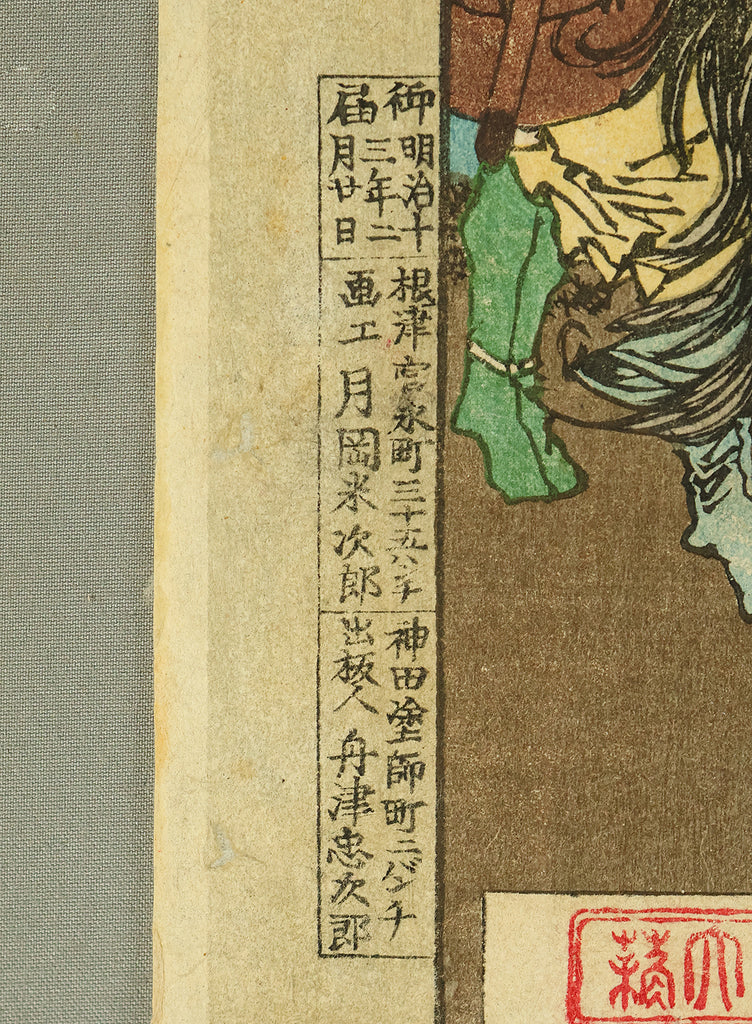 御明治十
三年二
届月廿日
根津宮永町三十五バンチ
画工月岡米次郎
神田塗師町二バンチ
出板人舟津忠次郎
大蘇